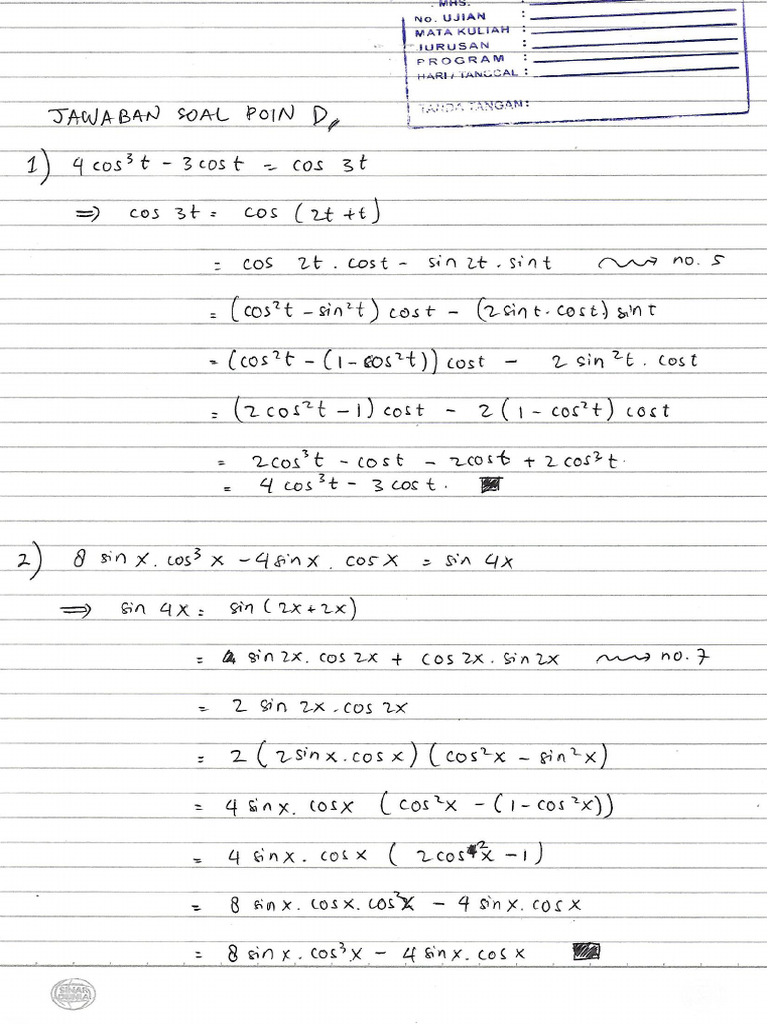 MHS.
No. UJIAN :
MATA KULIAH :
JURUSAN :
PROGRAM :
HARI / TANGGAL :
TANDA TANGAN :
JAWABAN SOAL POIN D,,
1) 4 cos³t - 3 cos t = cos 3t
⇒ cos 3t = cos (2t + t)
= cos 2t . cos t - sin 2t . sin t ⇝ no. 5
= (cos²t - sin²t) cos t - (2 sin t . cos t) sin t
= (cos²t - (1 - cos²t)) cos t - 2 sin²t . cos t
= (2 cos²t - 1) cos t - 2 (1 - cos²t) cos t
= 2cos³t - cos t - 2cos t + 2 cos³t .
= 4 cos³t - 3 cos t . ■
2) 8 sin x . cos³ x - 4 sin x . cos x = sin 4x
⇒ sin 4x = sin (2x + 2x)
= sin 2x . cos 2x + cos 2x . sin 2x ⇝ no. 7
= 2 sin 2x . cos 2x
= 2 (2 sin x . cos x) (cos²x - sin²x)
= 4 sin x . cos x (cos²x - (1 - cos²x))
= 4 sin x . cos x ( 2cos²x - 1)
= 8 sin x . cos x . cos²x - 4 sin x . cos x
= 8 sin x . cos³x - 4 sin x . cos x ■
SINAR DUNIA